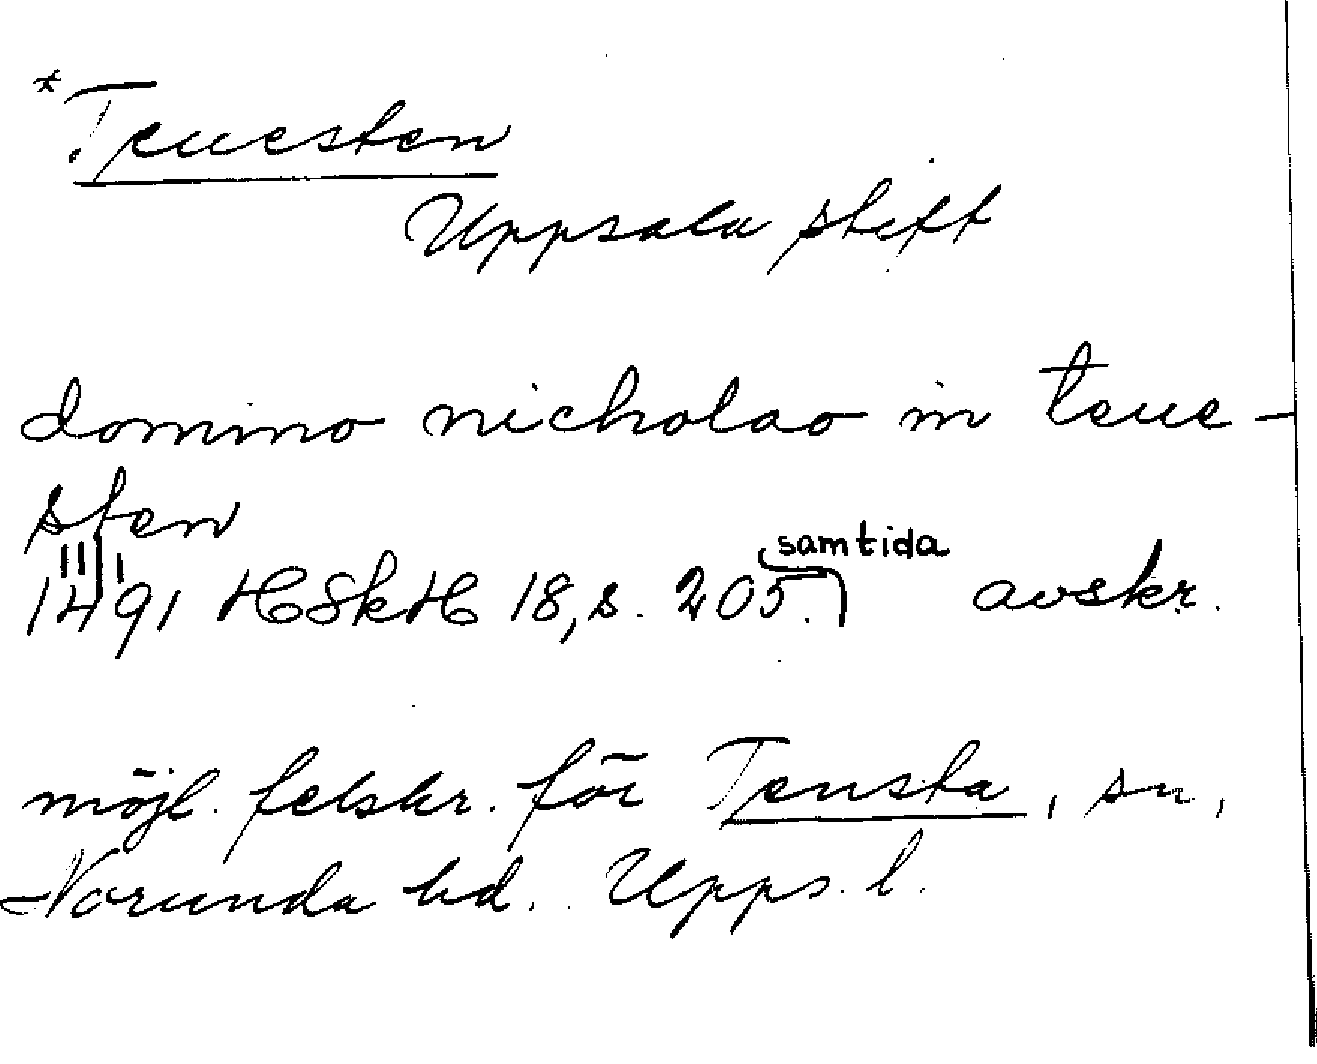 *Teuesten
Uppsala stift
domino nicholao in teue-
sten
1491 HSkH 18, s. 205. samtida avskr.
möjl. felskr. för Tensta, sn,
Norunda hd. Upps. l.